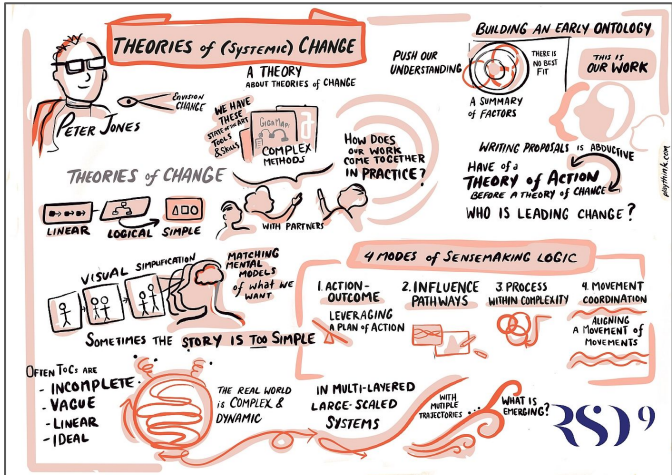 THEORIES of (SYSTEMIC) CHANGE
PETER JONES
ENVISION
CHANGE
A THEORY
ABOUT THEORIES of CHANGE
WE HAVE
THESE
STATE OF THE ART
TOOLS
& SKILLS
GIGAMAP
COMPLEX
METHODS
HOW DOES
OUR WORK
COME TOGETHER
IN PRACTICE?
WITH PARTNERS
THEORIES of CHANGE
LINEAR
LOGICAL
SIMPLE
VISUAL SIMPLIFICATION
MATCHING
MENTAL
MODELS
of WHAT WE
WANT
SOMETIMES THE STORY IS TOO SIMPLE
OFTEN TOCs ARE
- INCOMPLETE
- VAGUE
- LINEAR
- IDEAL
THE REAL WORLD
IS COMPLEX &
DYNAMIC
IN MULTI-LAYERED
LARGE-SCALED
SYSTEMS
WITH
MUTIPLE
TRAJECTORIES
WHAT IS
EMERGING?
BUILDING AN EARLY ONTOLOGY
PUSH OUR
UNDERSTANDING
THERE IS
NO BEST
FIT
A SUMMARY
OF FACTORS
THIS IS
OUR WORK
WRITING PROPOSALS IS ABDUCTIVE
HAVE of a
THEORY of ACTION
BEFORE A THEORY of CHANGE
WHO IS LEADING CHANGE?
playthink.com
4 MODES of SENSEMAKING LOGIC
1. ACTION-
OUTCOME
LEVERAGING
A PLAN of ACTION
2. INFLUENCE
PATHWAYS
3 PROCESS
WITHIN COMPLEXITY
4. MOVEMENT
COORDINATION
ALIGNING
A MOVEMENT of
MOVEMENTS
RSD9